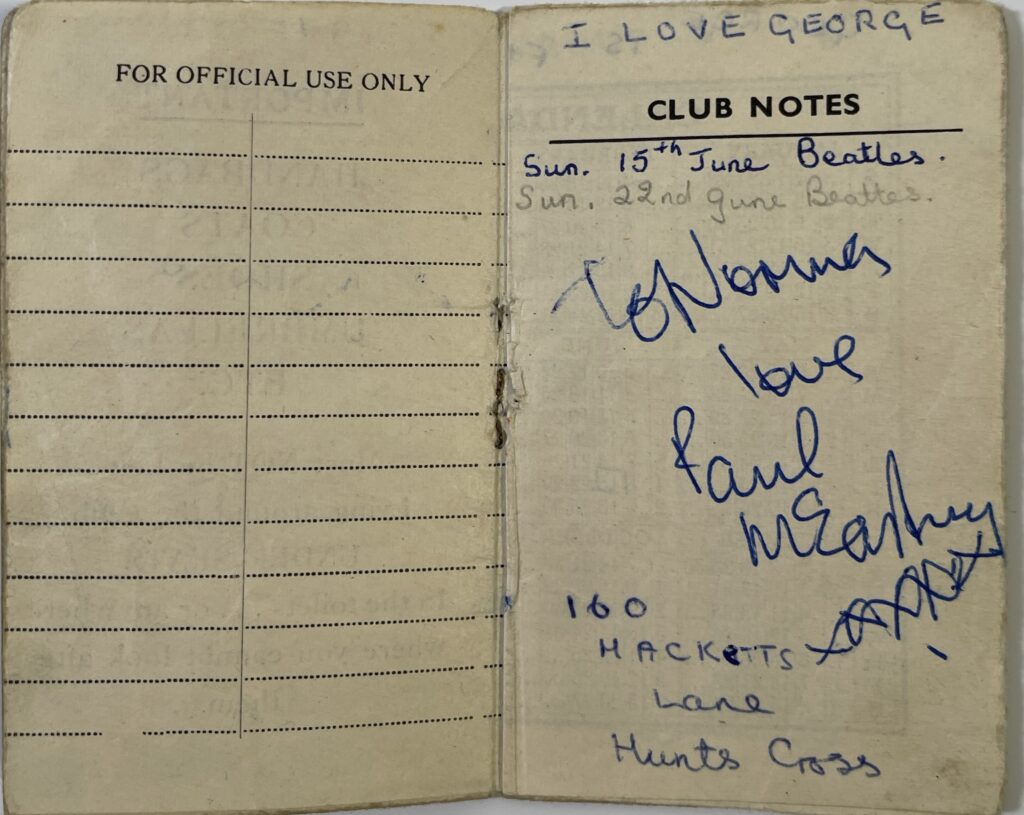 FOR OFFICIAL USE ONLY
I LOVE GEORGE
CLUB NOTES
Sun. 15th June Beatles.
Sun. 22nd June Beatles.
To Norma
love
Paul
McCartney
xxxxxx
160
HACKETTS
Lane
Hunts Cross